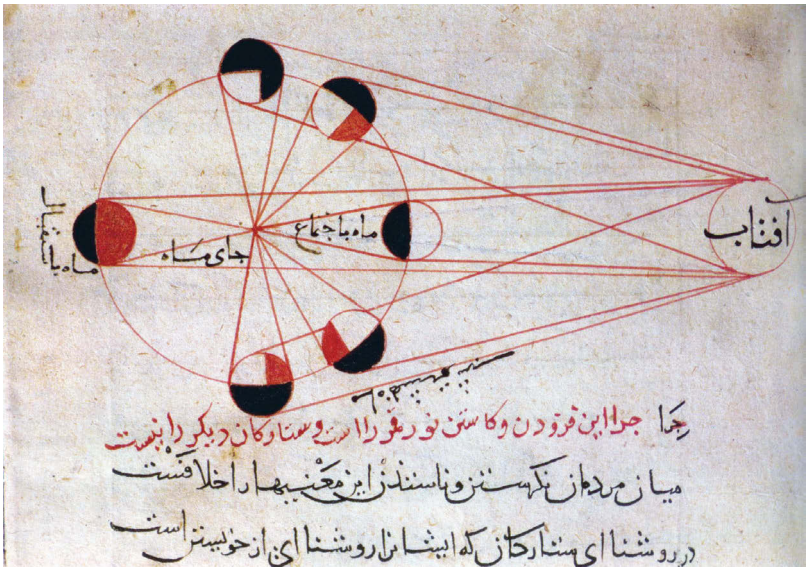 افتاب
ماه باجتماع
جای مَاه
ماه باستقبال
جِرَا جرا این فزودن و کاستن نور قمر را است و ستارکان دیکر را نیست
میان مردمان نکرستن این مَعْنیها را خلافَسْت
در روشنا ای ستارکان که ایشانرا روشنا ای از خویستن است